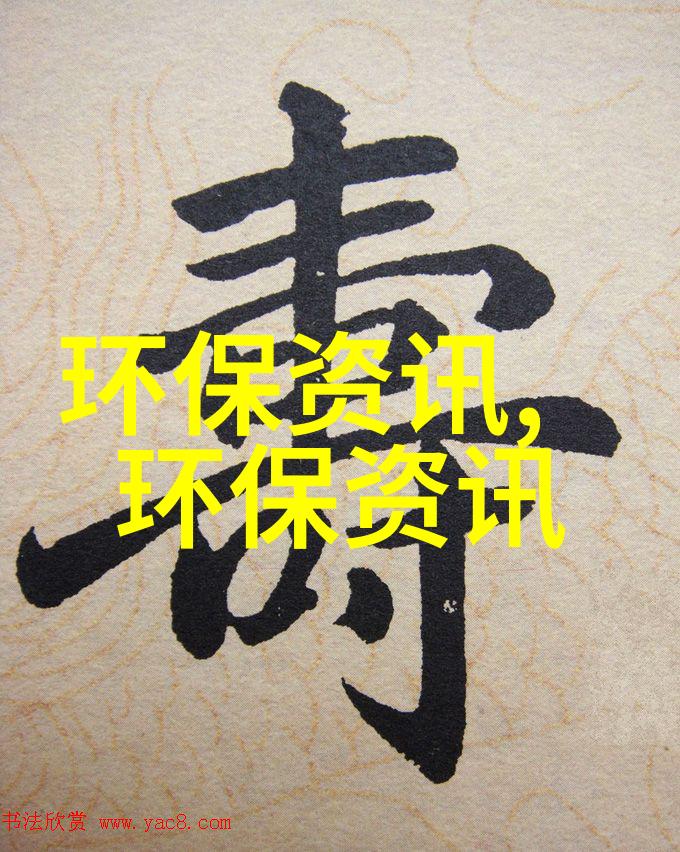 壽
环保资讯,
环保资讯
书法欣赏 www.yac8.com